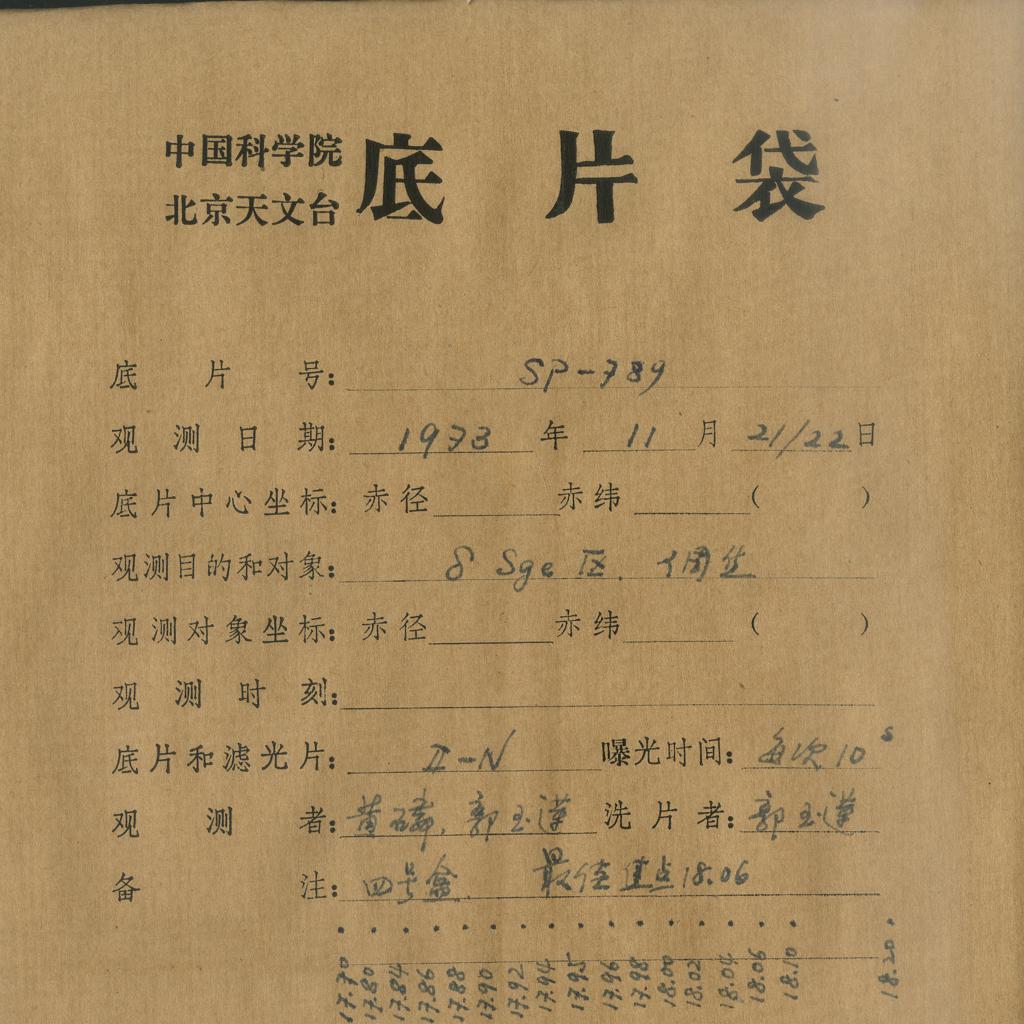 中国科学院
北京天文台
底片袋
底片号: SP-789
观测日期: 1973年 11月 21/22日
底片中心坐标: 赤径 赤纬 ( )
观测目的和对象: δ Sge 区. 调焦
观测对象坐标: 赤径 赤纬 ( )
观测时刻:
底片和滤光片: II-N 曝光时间: 每次 10s
观测者: 黄磷, 郭玉 洗片者: 郭玉
备注: 四号盒. 最佳焦点 18.06
17.70 17.80 17.84 17.86 17.88 17.90 17.92 17.94 17.95 17.96 17.98 18.00 18.02 18.04 18.06 18.10 18.20